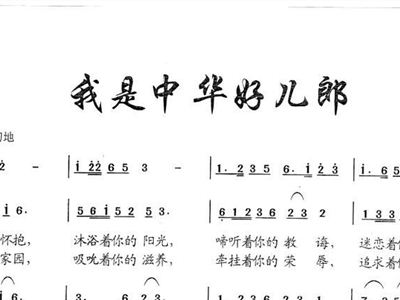 我是中华好儿郎
地
– i̇ 2̇2̇ 6 5 3 – 1. 2 3 5 6. i̇ 2̇ 3̇
i̇ 6. 5 6 i̇ 5 5 2 3. 6 1 2 3 6 2 3 2. 3 5 6
怀抱， 沐浴着你的 阳光， 啼听着你的 教 诲， 迷恋着
家园， 吸吮着你的 滋养， 牵挂着你的 荣 辱， 追求着